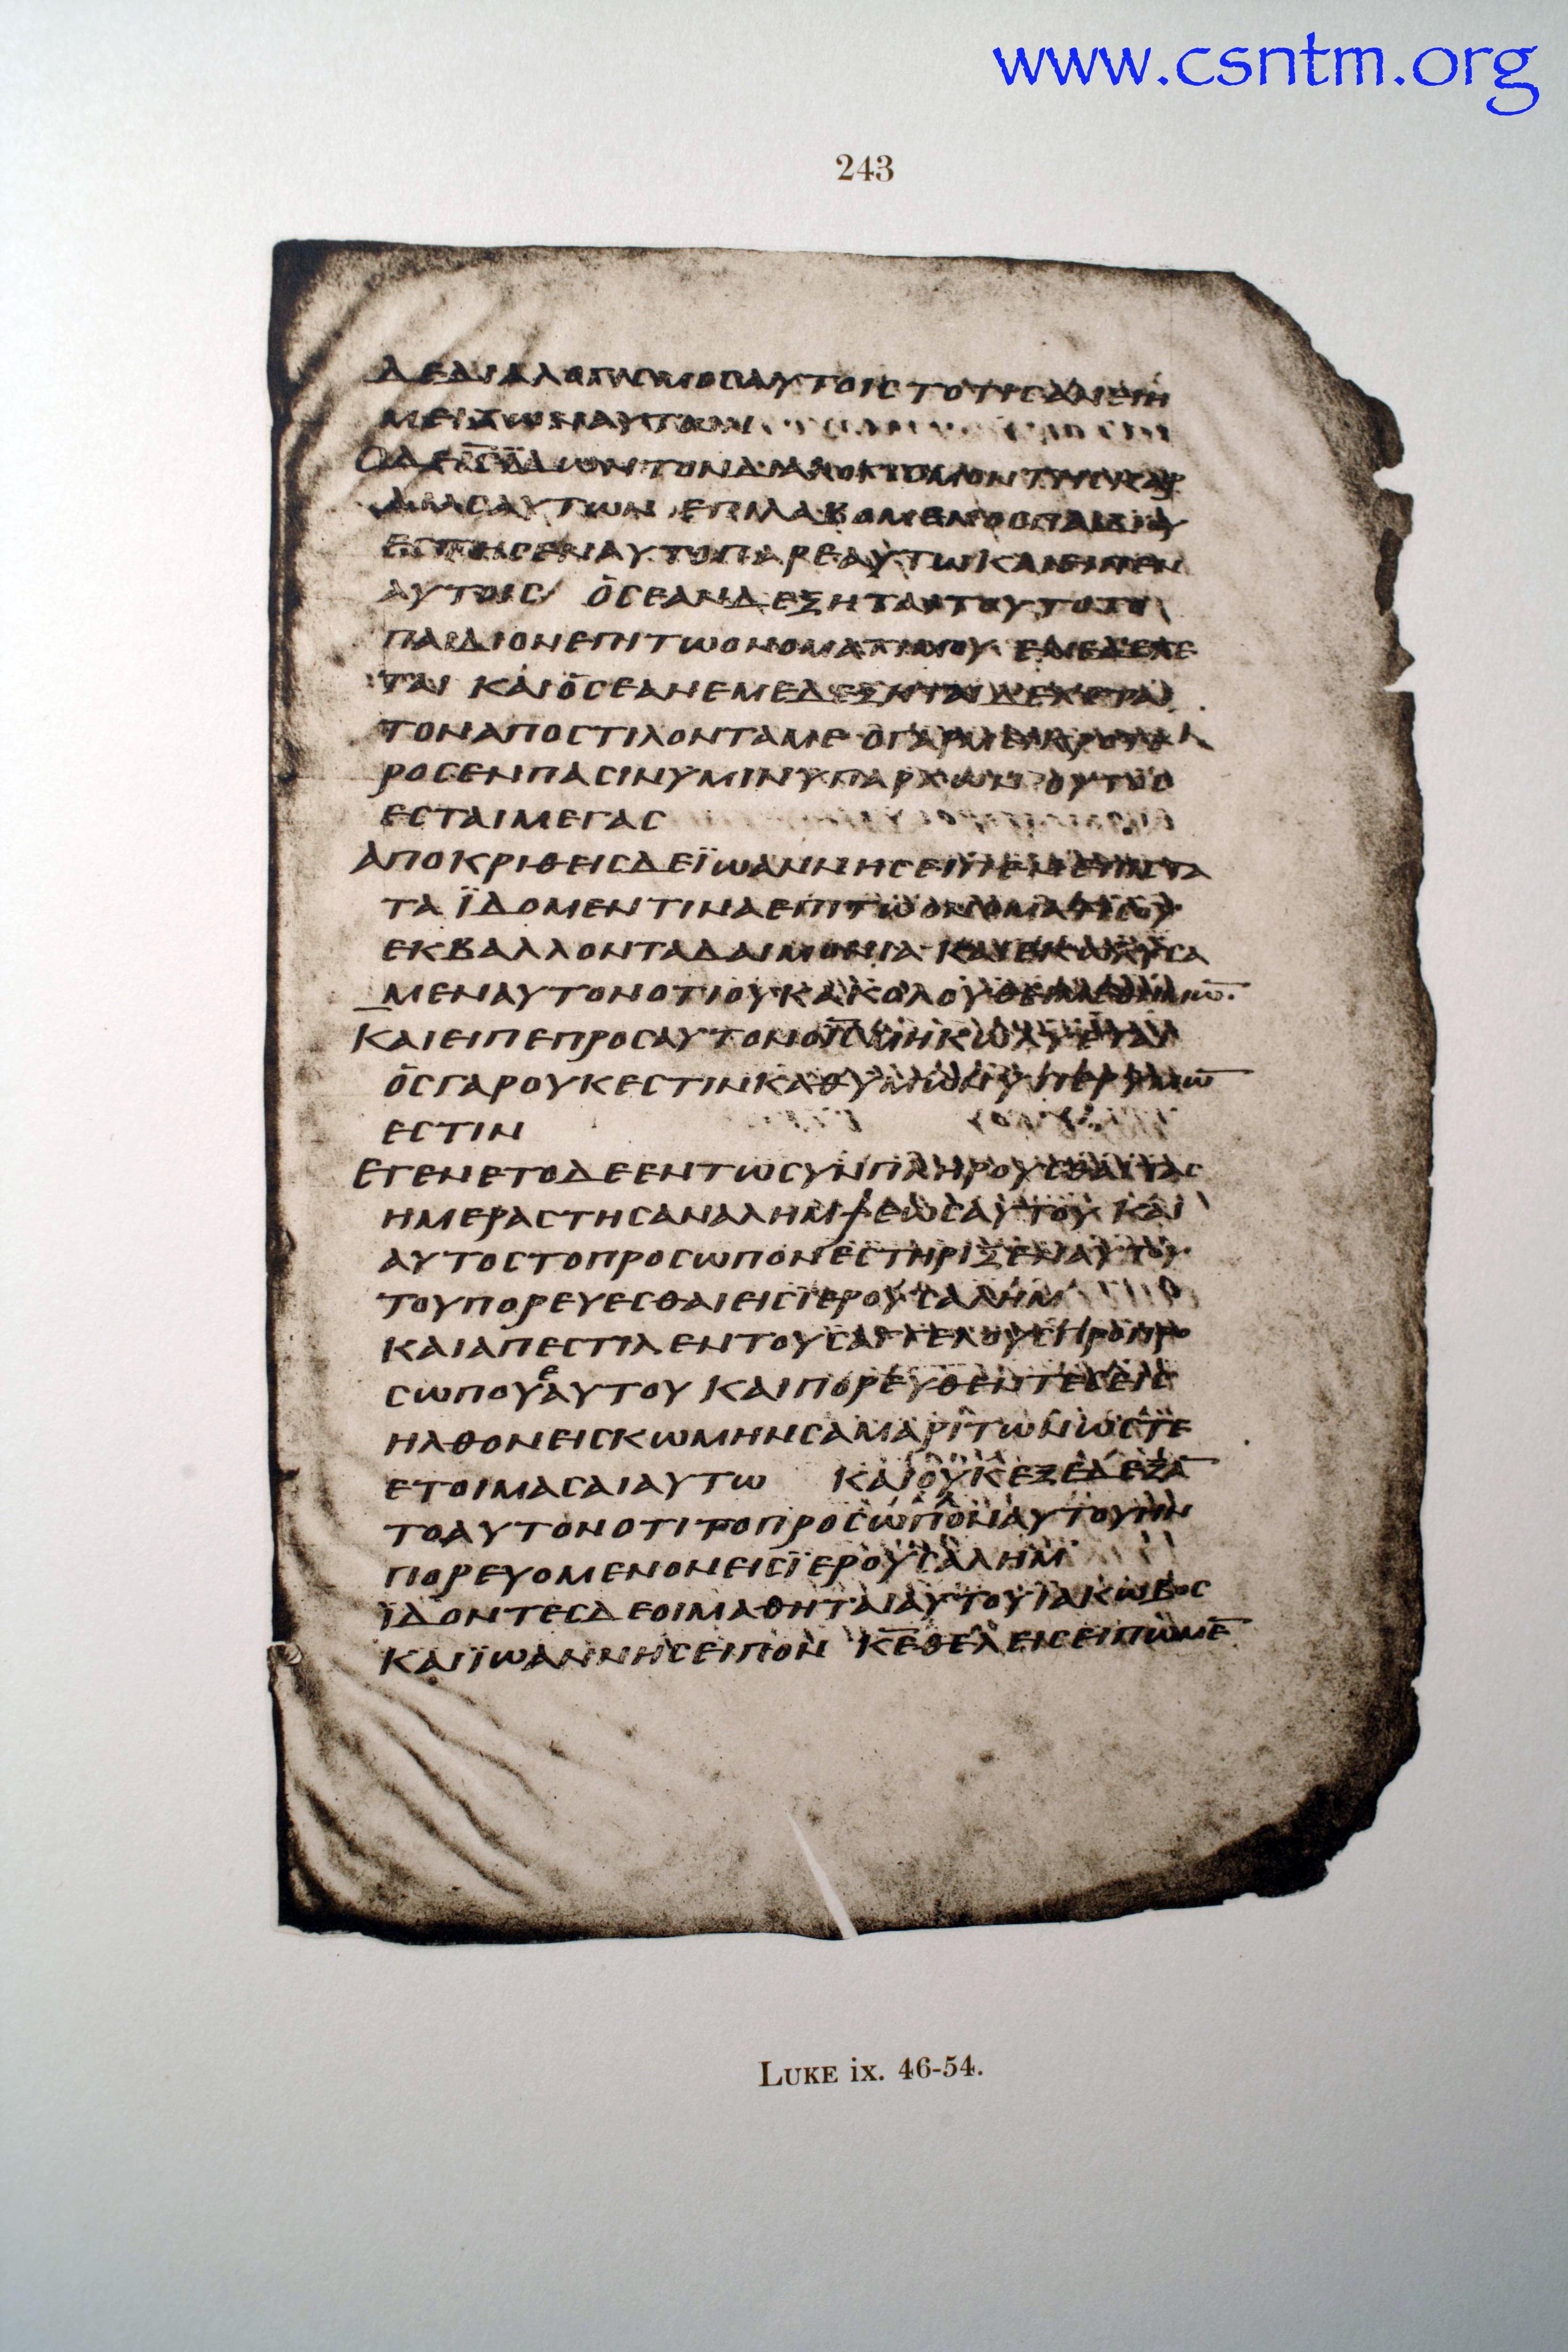 www.csntm.org
243
ΔΕΔΙΑΛΟΓΙϹΜΟϹΑΥΤΟΙϹΤΟΤΙϹΑΝΕΙΗ
ΜΕΙΖΩΝΑΥΤΩΝ
ΟΔΕΙ̅Ϲ̅ΪΔΩΝΤΟΝΔΙΑΛΟΓΙϹΜΟΝΤΗϹΚΑΡ
ΔΙΑϹΑΥΤΩΝ ΕΠΙΛΑΒΟΜΕΝΟϹΠΑΙΔΙΟΥ
ΕϹΤΗϹΕΝΑΥΤΟΠΑΡΕΑΥΤΩΚΑΙΕΙΠΕΝ
ΑΥΤΟΙϹ ΟϹΕΑΝΔΕΞΗΤΑΙΤΟΥΤΟΤΟ
ΠΑΙΔΙΟΝΕΠΙΤΩΟΝΟΜΑΤΙΜΟΥ ΕΜΕΔΕΧΕ
ΤΑΙ ΚΑΙΟϹΕΑΝΕΜΕΔΕΞΗΤΑΙΔΕΧΕΤΑΙ
ΤΟΝΑΠΟϹΤΙΛΟΝΤΑΜΕ ΟΓΑΡΜΕΙΚΡΟΤΕ
ΡΟϹΕΝΠΑϹΙΝΥΜΙΝΥΠΑΡΧΩΝ ΟΥΤΟϹ
ΕϹΤΑΙΜΕΓΑϹ
ΑΠΟΚΡΙΘΕΙϹΔΕΪΩΑΝΝΗϹΕΙΠΕΝΕΠΙϹΤΑ
ΤΑ ΪΔΟΜΕΝΤΙΝΑΕΠΙΤΩΟΝΟΜΑΤΙϹΟΥ
ΕΚΒΑΛΛΟΝΤΑΔΑΙΜΟΝΙΑ ΚΑΙΕΚΩΛΥϹΑ
ΜΕΝΑΥΤΟΝΟΤΙΟΥΚΑΚΟΛΟΥΘΕΙΜΕΘΗΜΩ̅
ΚΑΙΕΙΠΕΠΡΟϹΑΥΤΟΝΟΙ̅Ϲ̅ΜΗΚΩΛΥΕΤΑΙ
ΟϹΓΑΡΟΥΚΕϹΤΙΝΚΑΘΥΜΩΝΥΠΕΡΥΜΩ̅
ΕϹΤΙΝ
ΕΓΕΝΕΤΟΔΕΕΝΤΩϹΥΝΠΛΗΡΟΥϹΘΑΙΤΑϹ
ΗΜΕΡΑϹΤΗϹΑΝΑΛΗΜΨΕΩϹΑΥΤΟΥ ΚΑΙ
ΑΥΤΟϹΤΟΠΡΟϹΩΠΟΝΕϹΤΗΡΙΞΕΝΑΥΤΟΥ
ΤΟΥΠΟΡΕΥΕϹΘΑΙΕΙϹΪΕΡΟΥϹΑΛΗΜ
ΚΑΙΑΠΕϹΤΙΛΕΝΤΟΥϹΑΓΓΕΛΟΥϹΠΡΟΠΡΟ
ϹΩΠΟΥΕΑΥΤΟΥ ΚΑΙΠΟΡΕΥΘΕΝΤΕϹΕΙϹ
ΗΛΘΟΝΕΙϹΚΩΜΗΝϹΑΜΑΡΙΤΩΝΩϹΤΕ
ΕΤΟΙΜΑϹΑΙΑΥΤΩ ΚΑΙΟΥΚΕΞΕΔΕΞΑ̅
ΤΟΑΥΤΟΝΟΤΙΤΟΠΡΟϹΩΠΟΝΑΥΤΟΥΗΝ
ΠΟΡΕΥΟΜΕΝΟΝΕΙϹΪΕΡΟΥϹΑΛΗΜ
ΪΔΟΝΤΕϹΔΕΟΙΜΑΘΗΤΑΙΑΥΤΟΥΪΑΚΩΒΟϹ
ΚΑΙΪΩΑΝΝΗϹΕΙΠΟΝ Κ̅Ε̅ΘΕΛΕΙϹΕΙΠΩΜΕ̅
LUKE ix. 46-54.